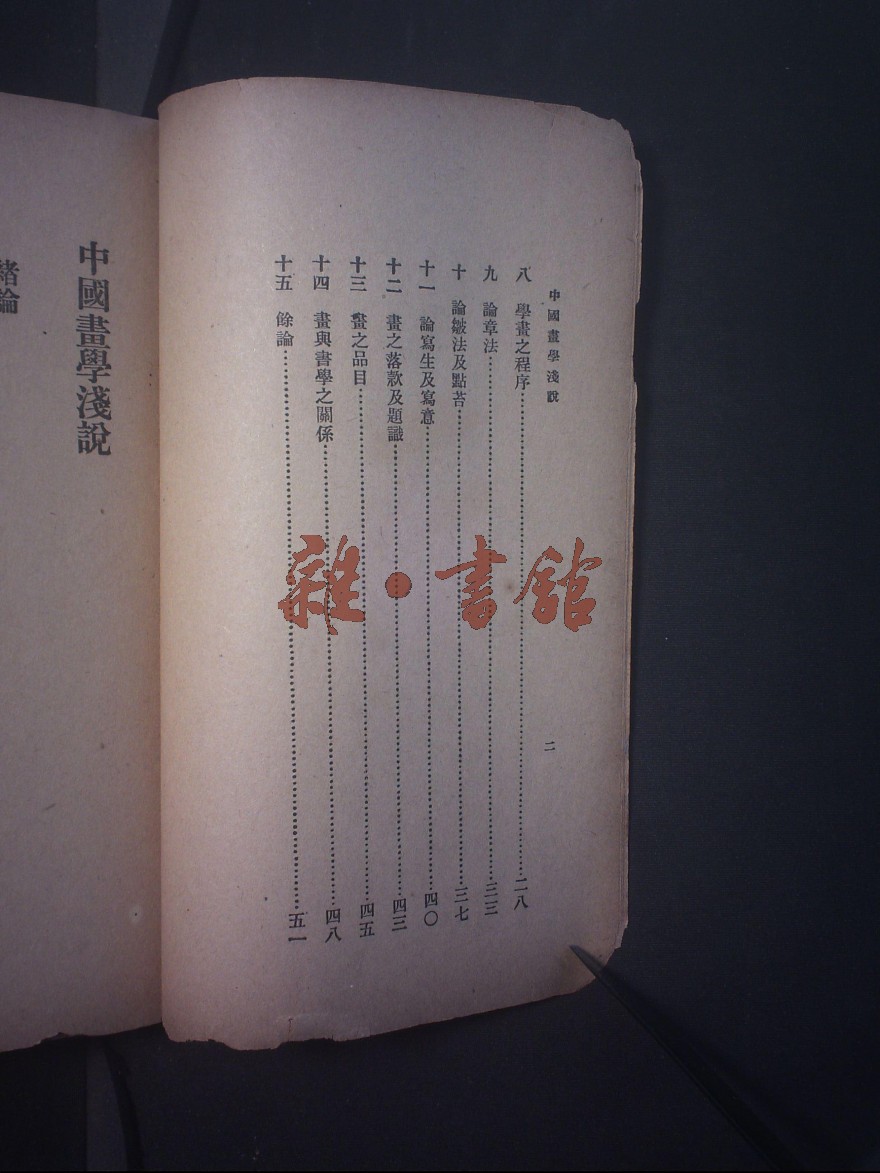 中國畫學淺說
八 學畫之程序……二八
九 論章法……三三
十 論皴法及點苔……三七
十一 論寫生及寫意……四〇
十二 畫之落款及題識……四三
十三 畫之品目……四五
十四 畫與書學之關係……四八
十五 餘論……五一
二
雜·書館
中國畫學淺說
緒論